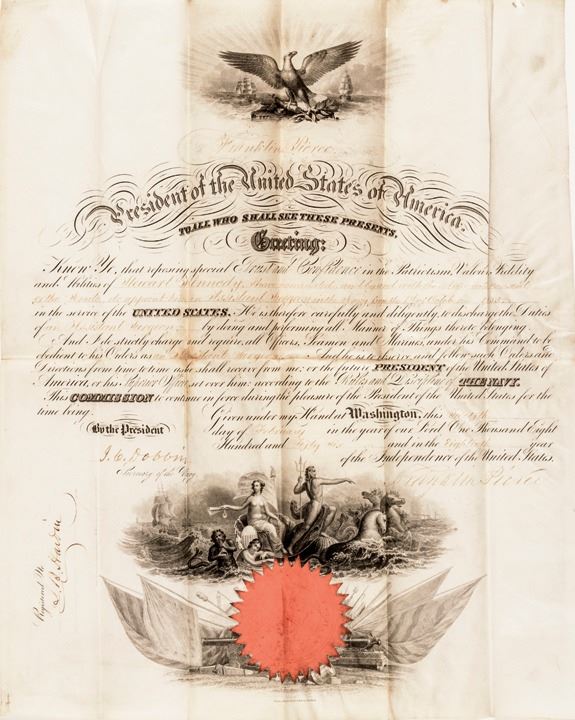 Franklin Pierce
President of the United States of America.
TO ALL WHO SHALL SEE THESE PRESENTS,
Greeting:
Know Ye, that reposing special Trust and Confidence in the Patriotism, Valour, Fidelity
and Abilities of Howard
in the service of the UNITED STATES. He is therefore carefully and diligently, to discharge the Duties
of by doing and performing all Manner of Things thereto belonging.
And I do strictly charge and require, all Officers, Seamen and Marines, under his Command to be
obedient to his Orders as And he is to observe and follow such Orders and
Directions from time to time as he shall receive from me; or the future PRESIDENT of the United States of
America, or his Superior Officer set over him: according to the Rules and Discipline of THE NAVY.
This COMMISSION to continue in force during the pleasure of the President of the United States for the
time being.
Given under my Hand at Washington, this
By the President
day of February in the year of our Lord One Thousand Eight
J.C. Dobbin
Hundred and Fifty six and in the Eightieth year
Secretary of the Navy
of the Independence of the United States.
Franklin Pierce
Registered No